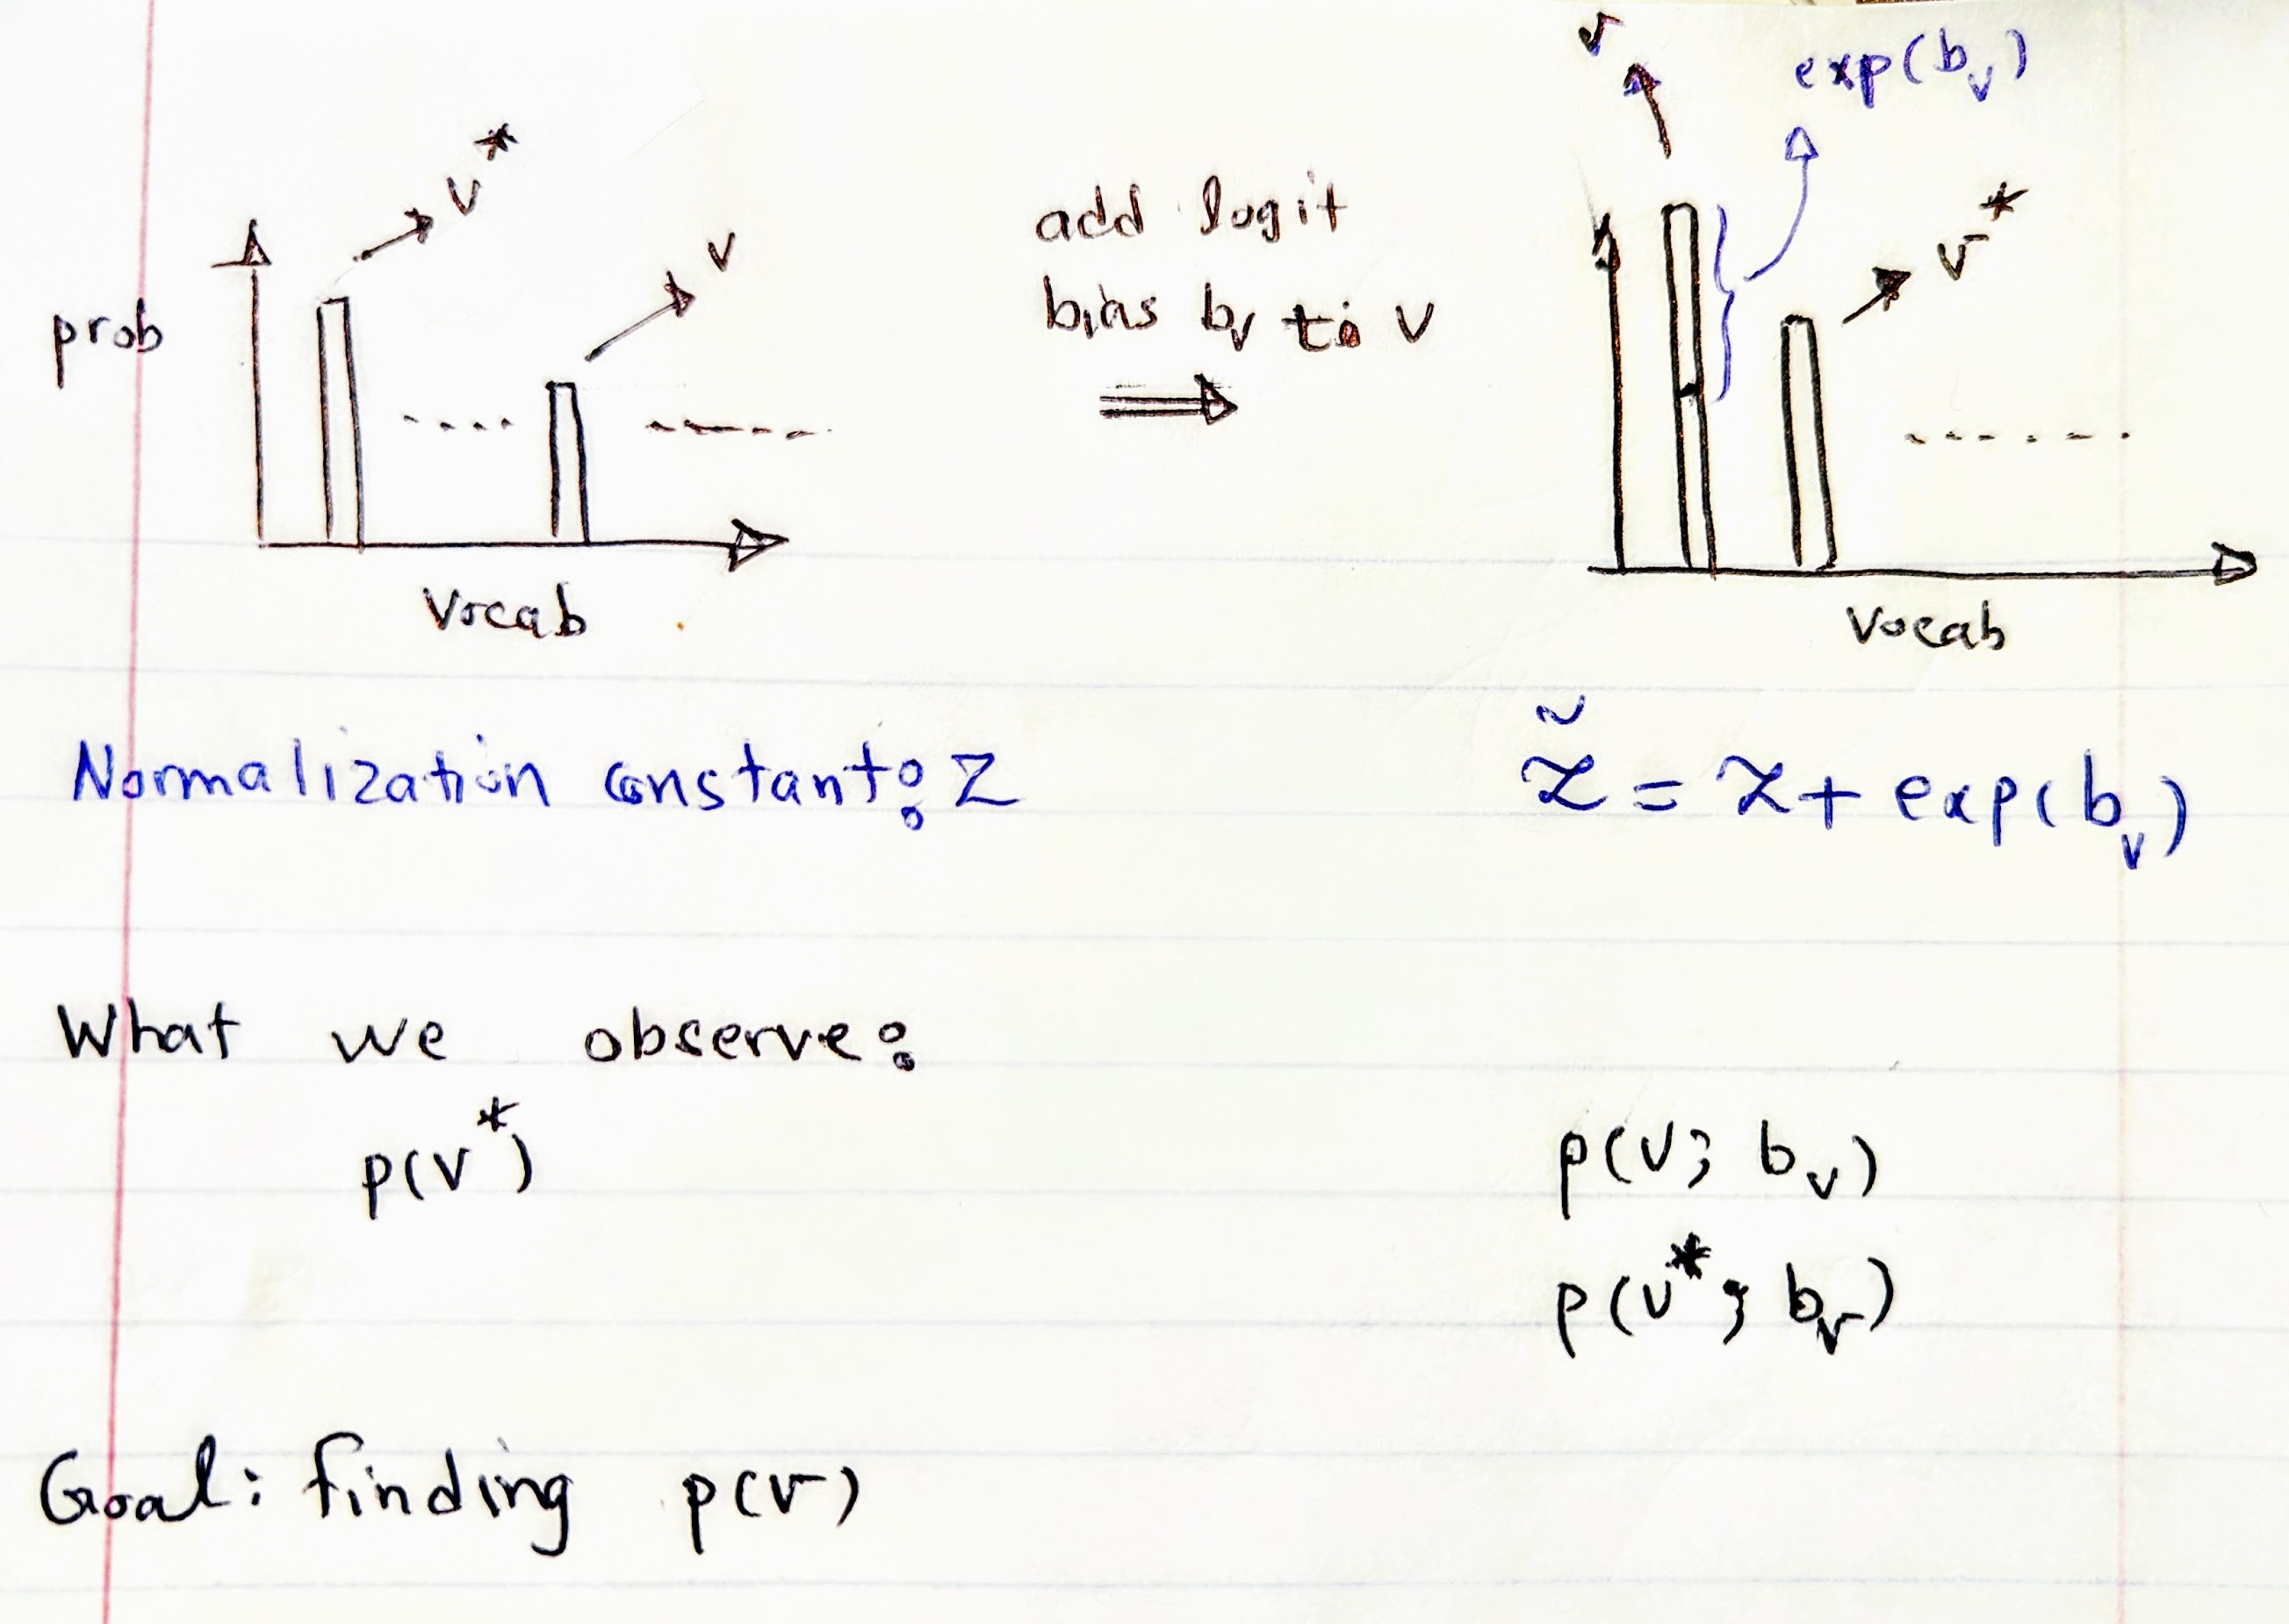 prob
v*
v
Vocab
add logit
bias b_v to v
v
exp(b_v)
v*
Vocab
Normalization constant: Z
z̃ = z + exp(b_v)
What we observe:
p(v*)
p(v; b_v)
p(v*; b_v)
Goal: finding p(v)